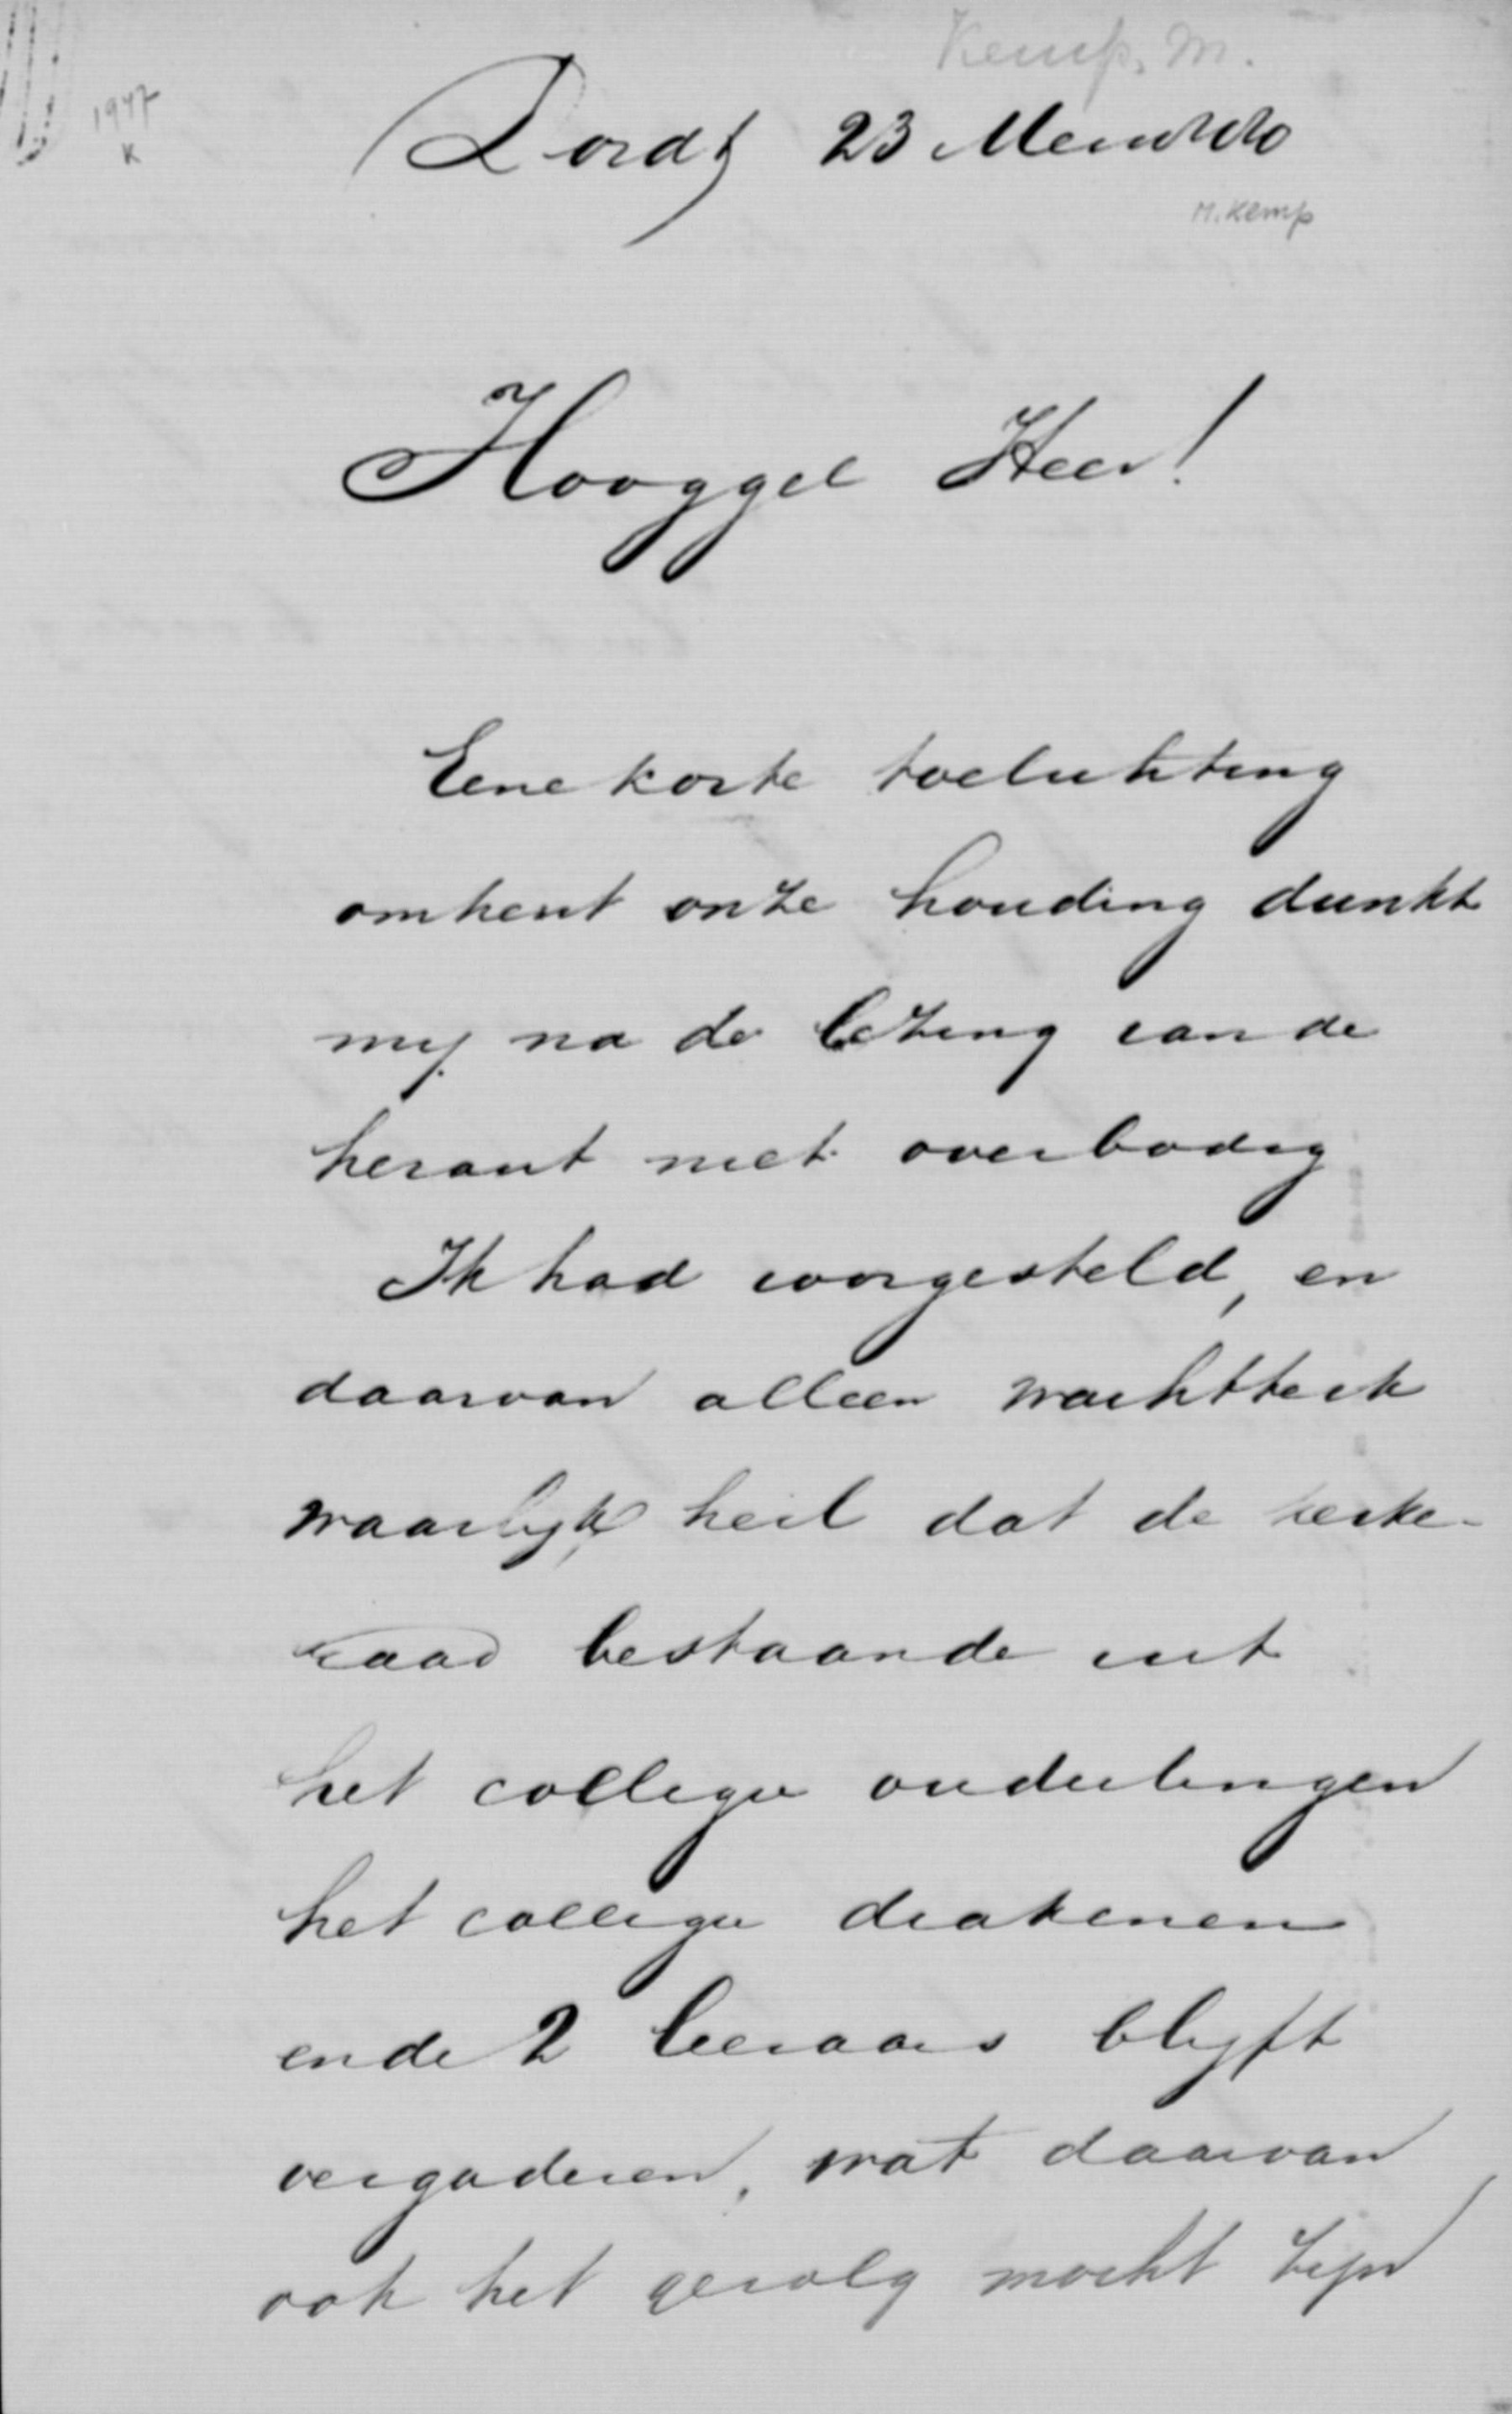 Kemp, M.
1947
K
Dordt 23
M. Kemp
Hooggel Heer!
Eene korte toelichting
omtrent onze houding dunkt
mij na de lezing van de
heraut niet overbodig
Ik had voorgesteld, en
daarvan alleen wacht ik
waarlijk heil dat de kerke-
raad bestaande uit
het college ouderlingen
het college diakenen
en de 2 leeraars blijft
vergaderen, wat daarvan
ook het gevolg mocht zijn